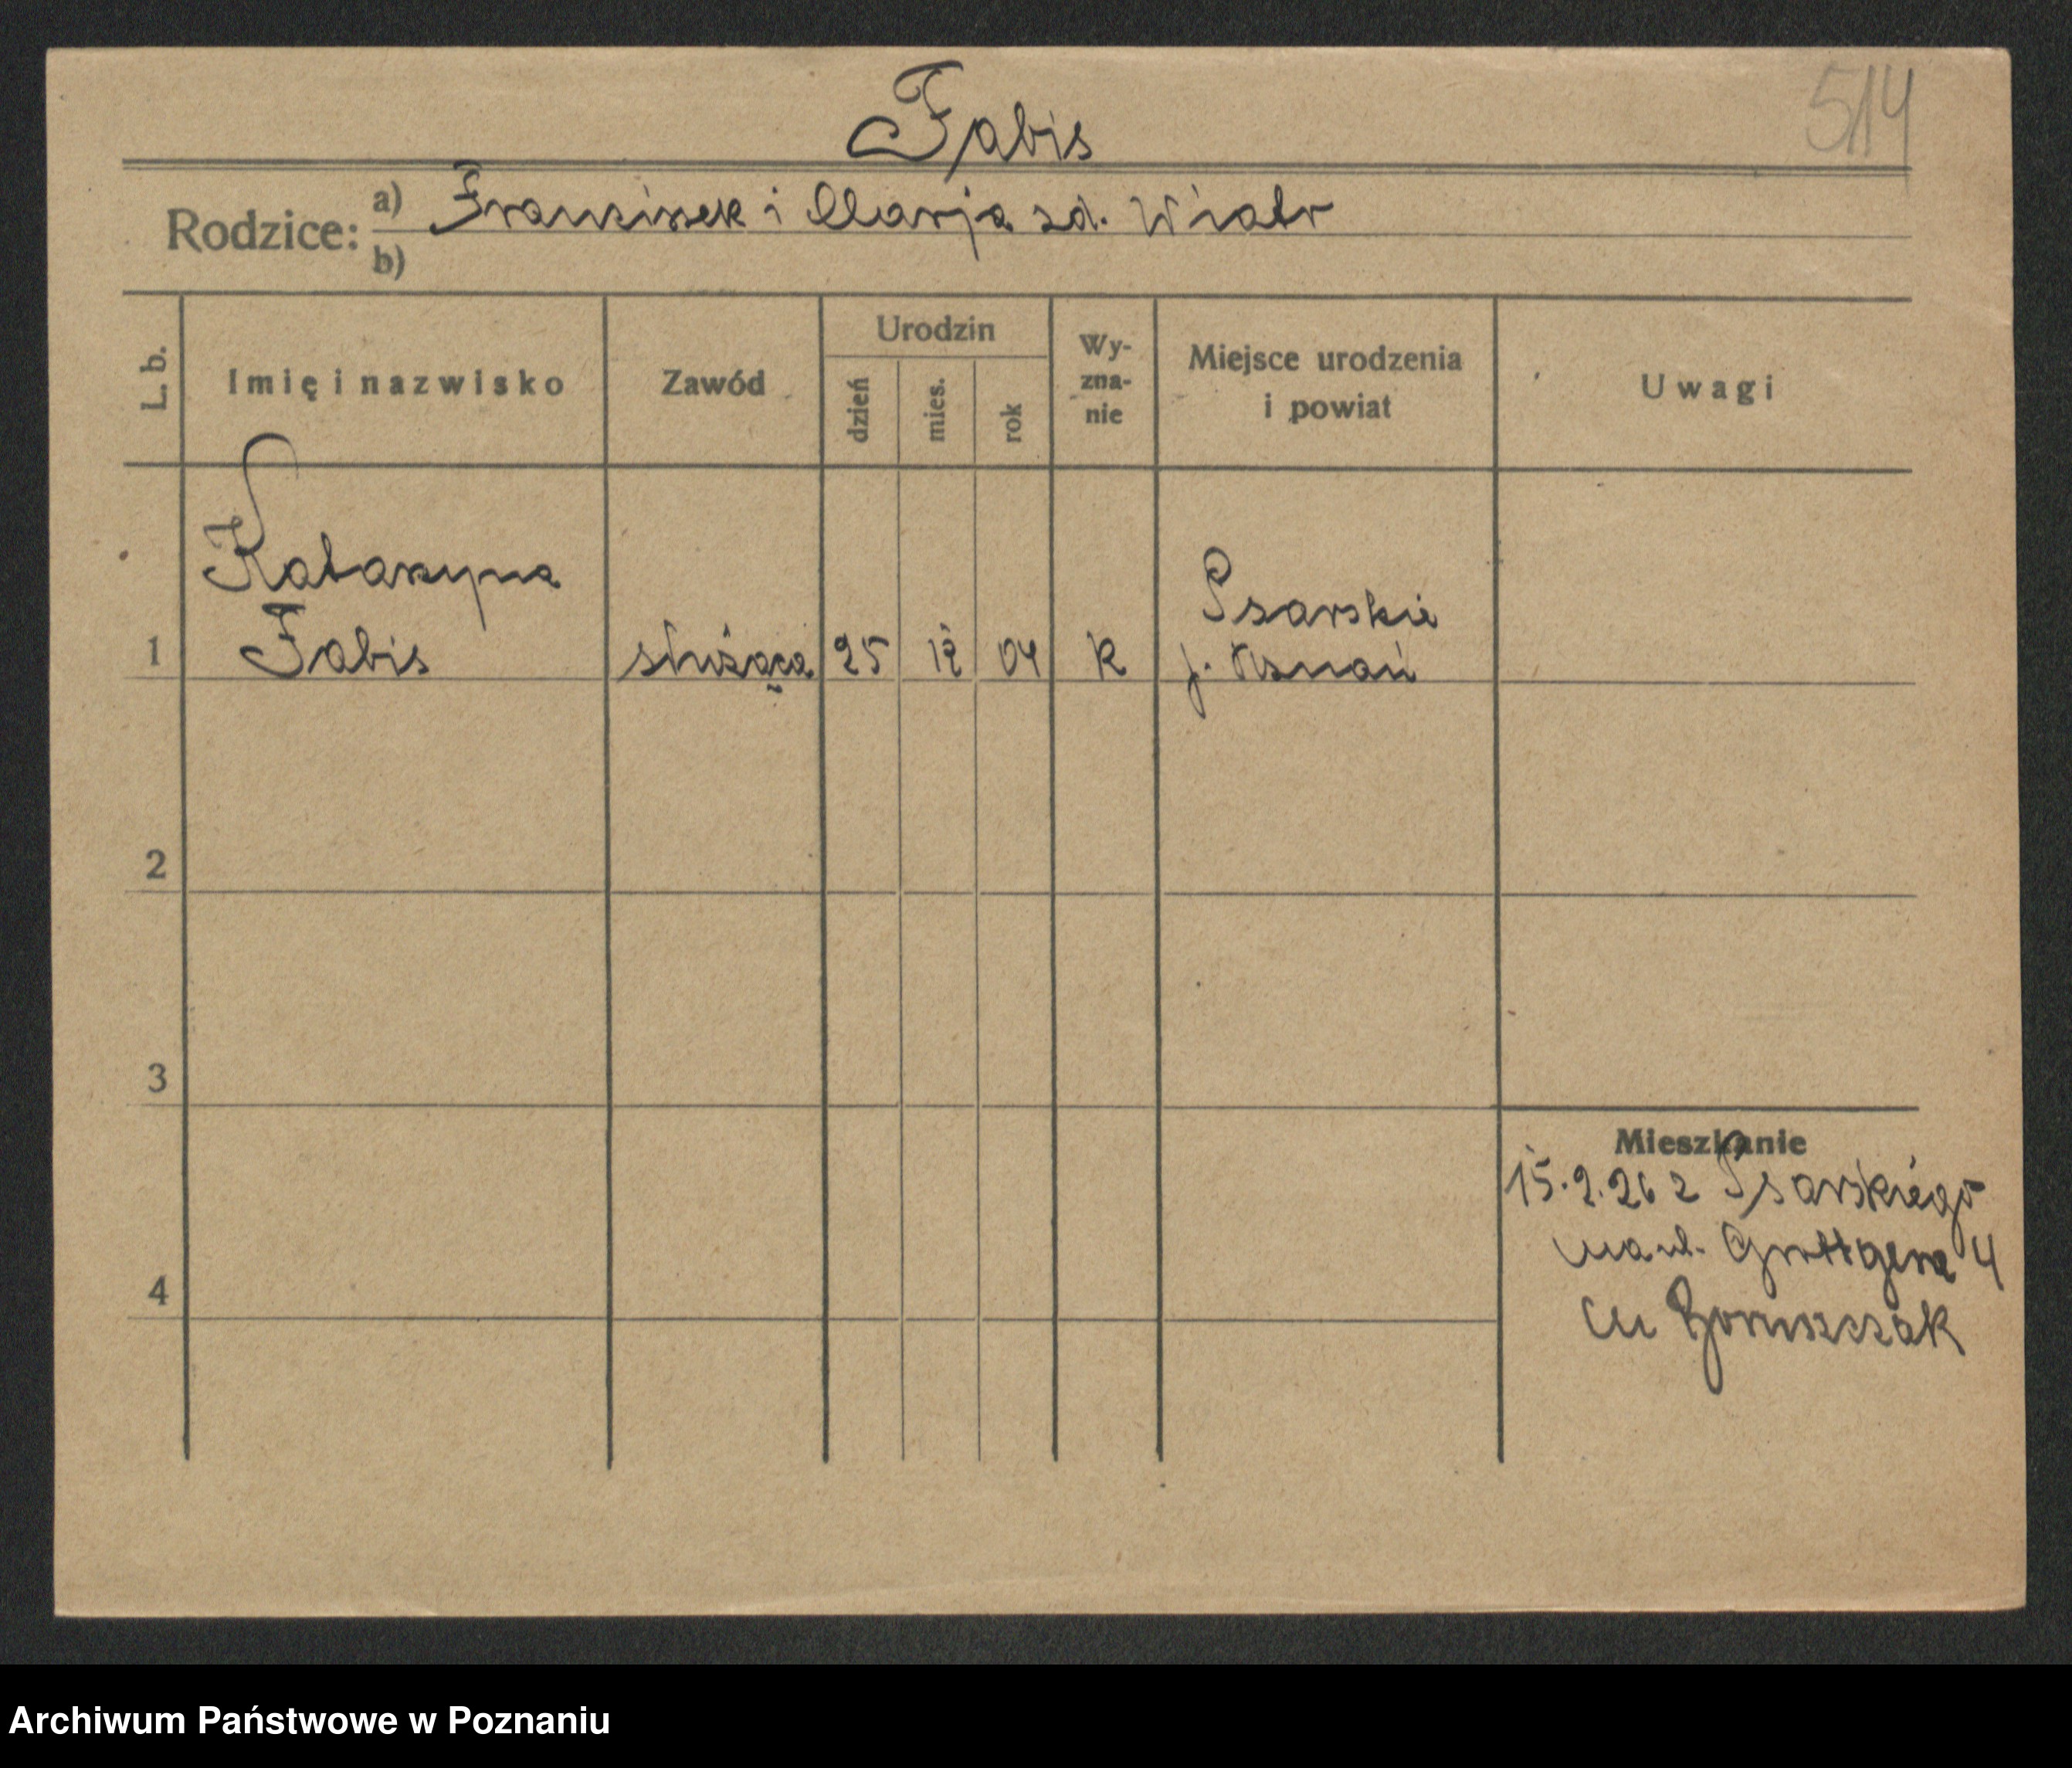 Fabis
514
Rodzice: a) Franciszek i Marja zd. Wiatr
b)
L. b.
Imię i nazwisko
Zawód
Urodzin
dzień
mies.
rok
Wy-
zna-
nie
Miejsce urodzenia
i powiat
Uwagi
Katarzyna
Fabis
1
służąca
25
12
04
k
Psarskie
p. Poznań
2
3
4
Mieszkanie
15.2.26 z Psarskiego
na ul. Grottgera 4
Archiwum Państwowe w Poznaniu